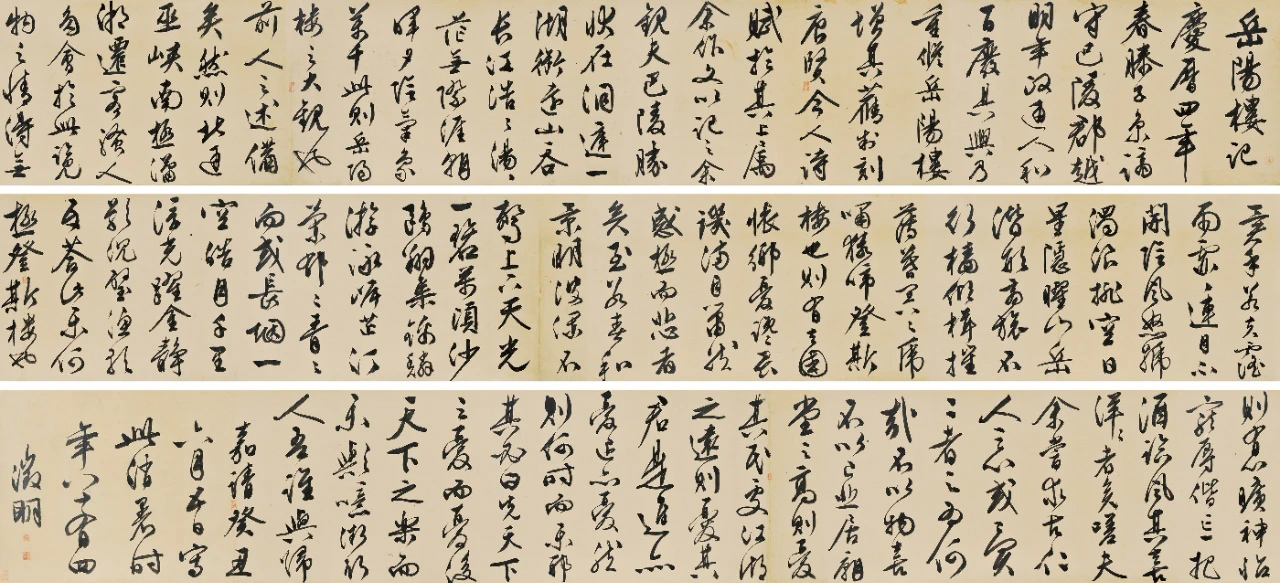 岳陽樓記
慶曆四年
春滕子京謫
守巴陵郡越
明年政通人和
百廢具興乃
重修岳陽樓
增其舊制刻
唐賢今人詩
賦於其上屬
余作文以記之余
觀夫巴陵勝
狀在洞庭一
湖銜遠山吞
長江浩〻湯〻
茫無際涯朝
暉夕陰氣象
萬千此則岳陽
樓之大觀也
前人之述備
矣然則北通
巫峽南極瀟
湘遷客騷人
多會於此覽
物之情得無
異乎若夫霪
雨霏〻連月不
開陰風怒號
濁浪排空日
星隱曜山岳
潛形商旅不
行檣傾楫摧
薄暮冥〻虎
嘯猿啼登斯
樓也則有去國
懷鄉憂讒畏
譏滿目蕭然
感極而悲者
矣至若春和
景明波瀾不
驚上下天光
一碧萬頃沙
鷗翔集錦鱗
游泳岸芷汀
蘭郁〻青〻
而或長烟一
空皓月千里
浮光躍金靜
影沉璧漁歌
互答此樂何
極登斯樓也
則有心曠神怡
寵辱偕忘把
酒臨風其喜
洋〻者矣嗟夫
余嘗求古仁
人之心或異
二者之為何
哉不以物喜
不以己悲居廟
堂之高則憂
其民處江湖
之遠則憂其
君是進亦
憂退亦憂然
則何時而樂耶
其必曰先天下
之憂而憂後
天下之樂而
樂歟噫微斯
人吾誰與歸
嘉靖癸丑
六月五日寫
此消暑時
年八十有四
徵明